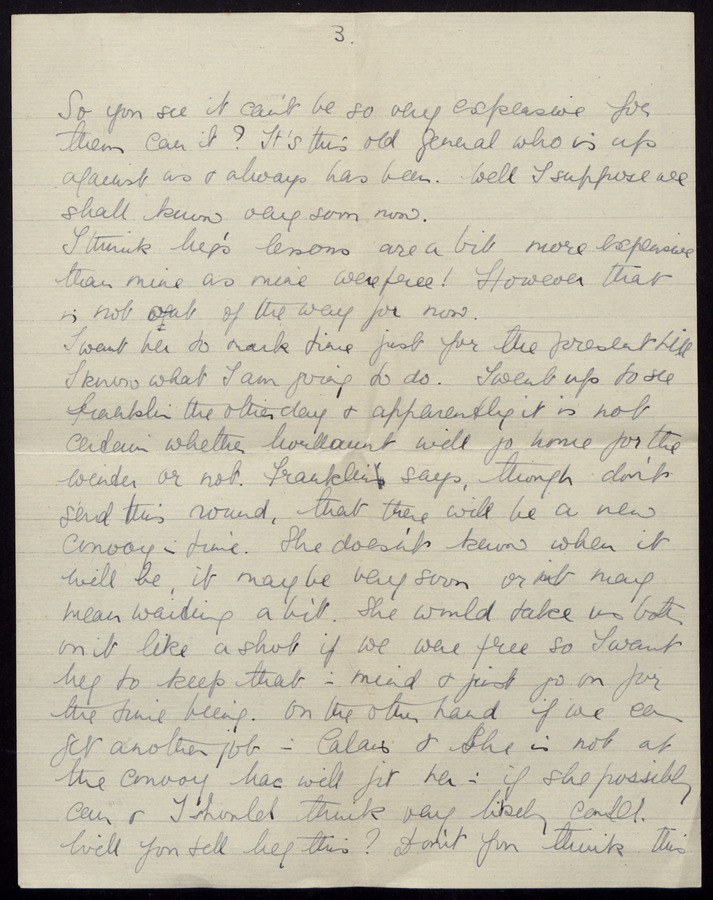 3.
So you see it can't be so very expensive for
them can it? It's this old general who is up
against us & always has been. Well I suppose we
shall know very soon now.
I think heg's lessons are a bit more expensive
than mine as mine were free! However that
is not out of the way for now.
I want her to mark time just for the present till
I know what I am going to do. I went up to see
Franklin the other day & apparently it is not
certain whether will go home for the
winter or not. Franklin says, though don't
send this round, that there will be a new
convoy in time. She doesn't know when it
will be, it may be very soon or it may
mean waiting a bit. She would take us both
on it like a shot if we were free so I want
heg to keep that in mind & just go on for
the time being. On the other hand if we can
get another job in Calais & she is not at
the convoy Mac will fit her in if she possibly
can & I should think very likely could.
Will you tell heg this? Don't you think this